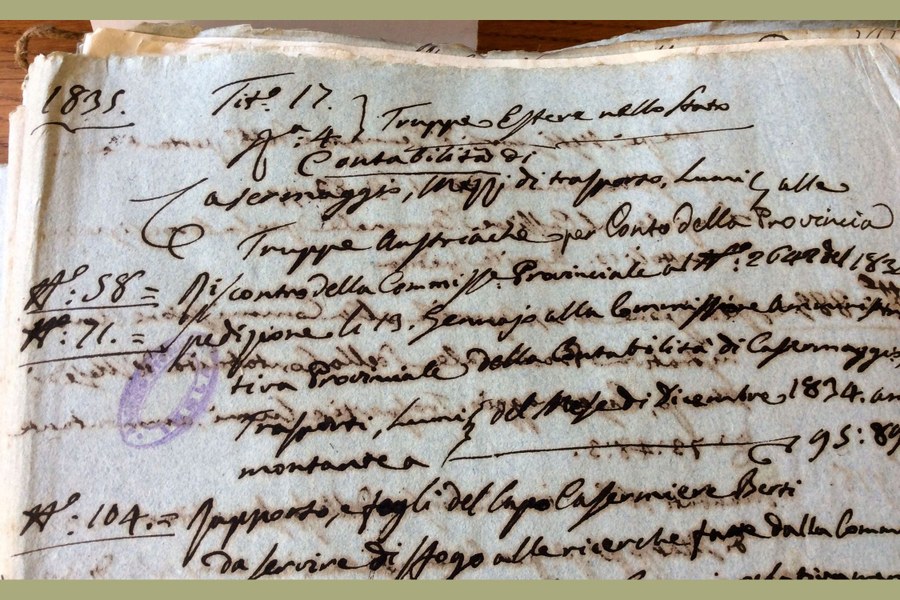 1835. Tit.º 17. } Truppe Estere nello Stato
f.ª 4.
Contabilità di
Casermaggio, Mezzi di trasporto, Lumi alle
Truppe Austriache per Conto della Provincia
Nº: 58 = Riscontro della Commiss.e Provinciale al Nº: 2648 del 183
Nº: 71. = Spedizione li 19. Gennajo alla Commissione Amministra
tiva Provinciale della Contabilità di Casermaggio
Trasporti, Lumi del Mese di Dicembre 1834. am
montante a 95:89
Nº: 104. = Rapporto, e fogli del Capo Casermiere Berti
da servire di sfogo alle ricerche fatte dalla Comm